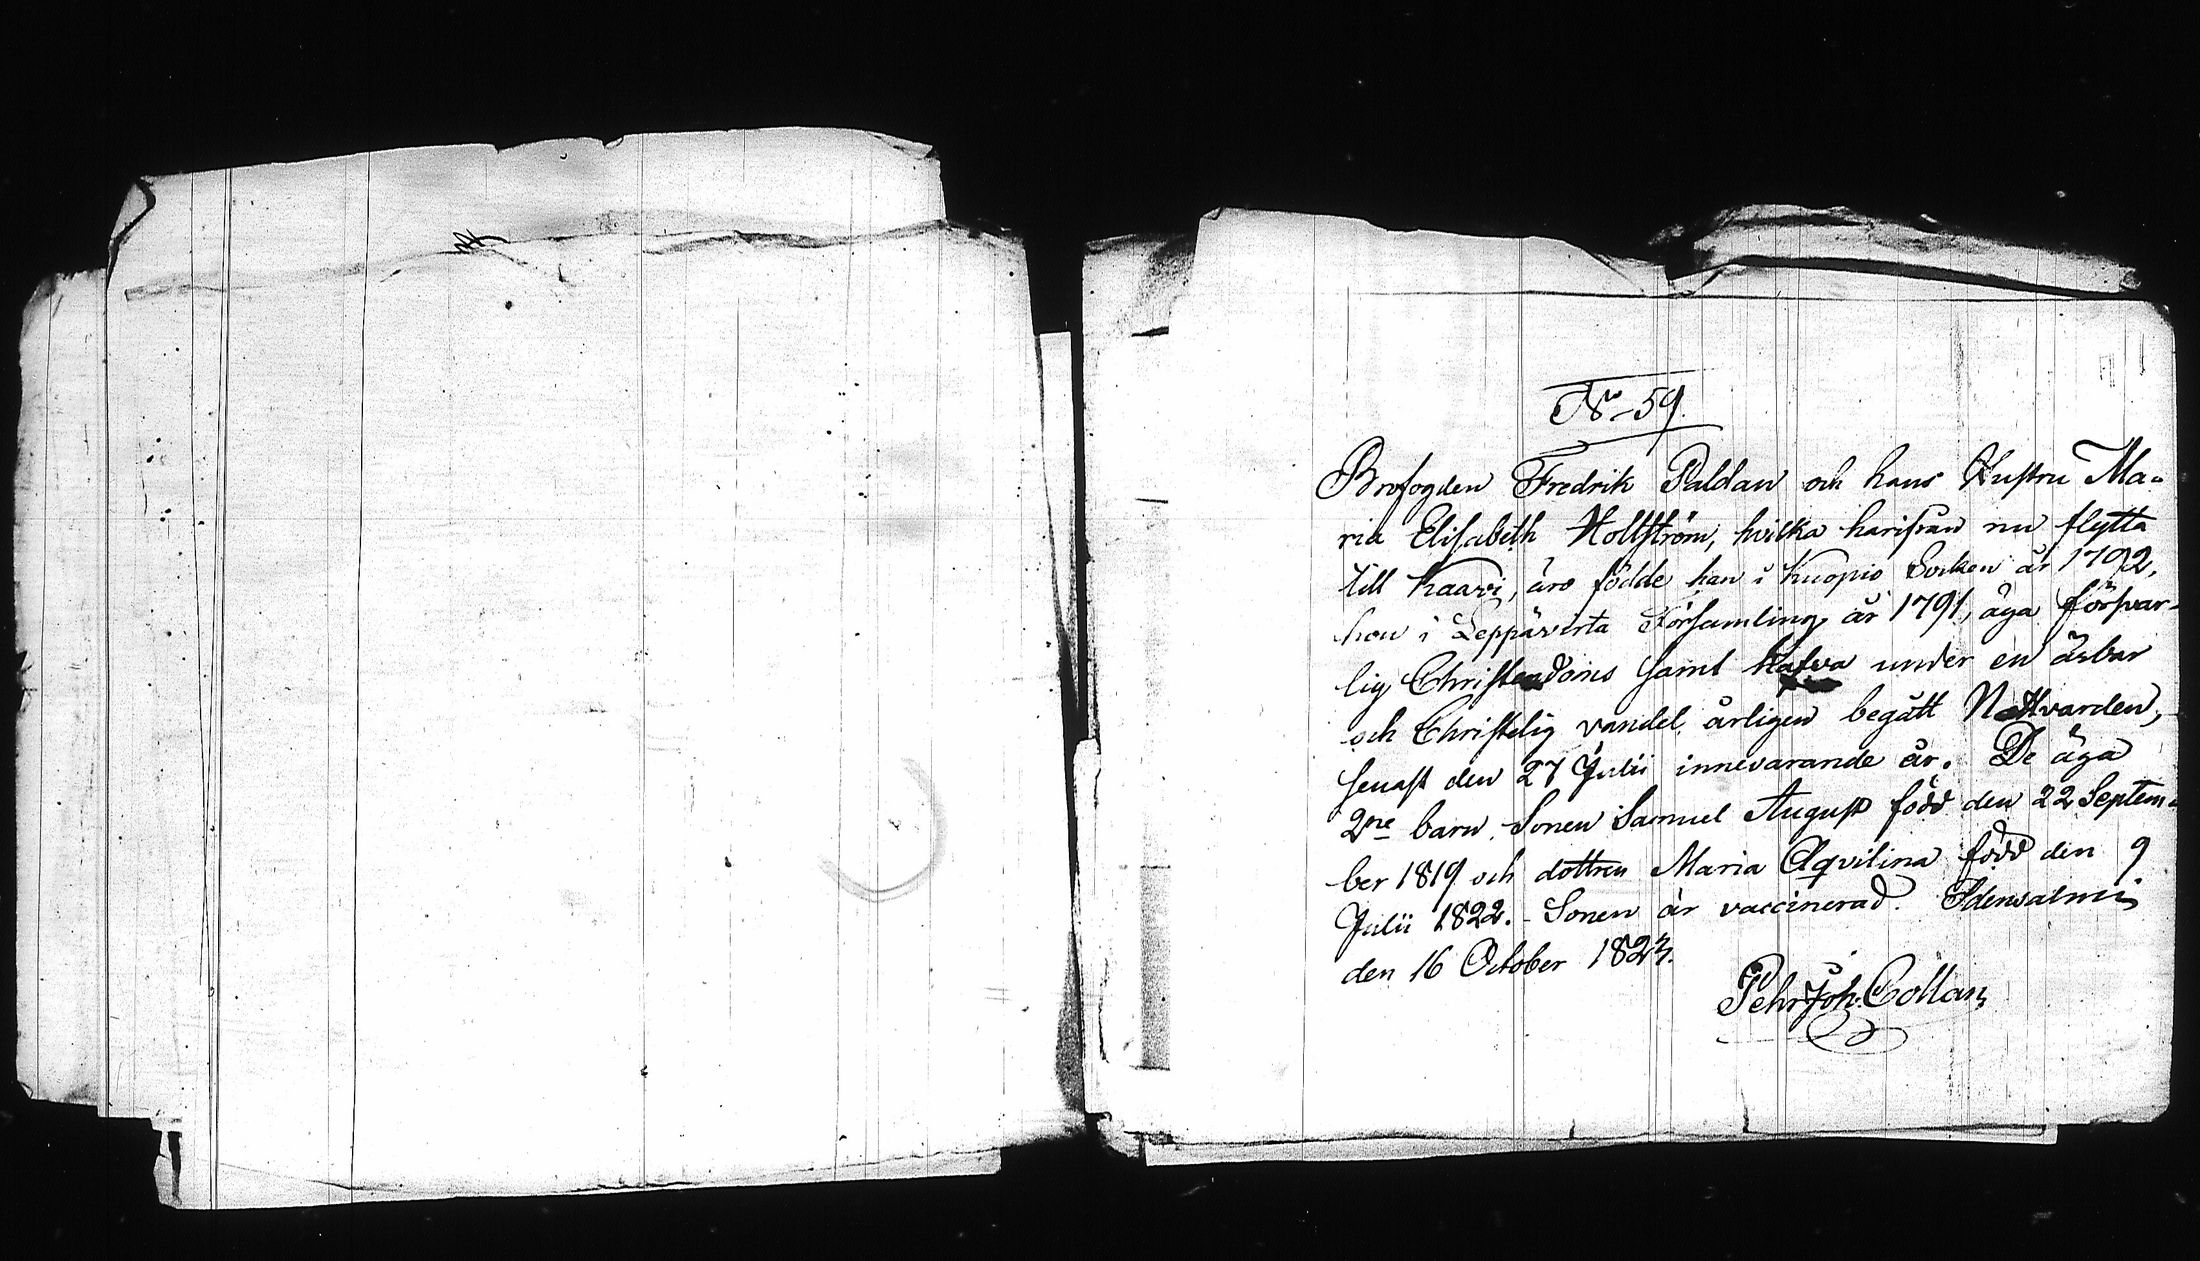 No 59.
Brofogden Fredrik Paldan och hans Hustru Ma-
ria Elisabeth Hollström, hvilka härifrån nu flytta
till Kaavi, äro födde, han i Kuopio Socken år 1792,
hon i Leppävirta Församling år 1791, äga försvar-
lig Christendoms samt hafva under en ärbar
och Christelig vandel årligen begått Nattvarden,
senast den 27 Julii innevarande år. De äga
2ne barn, Sonen Samuel August född den 22 Septem-
ber 1819 och dottren Maria Aqvilina född den 9
Julii 1822. - Sonen är vaccinerad. Idensalmi
den 16 October 1823.
Pehr Joh. Collan